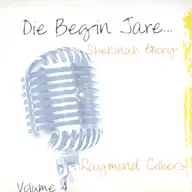 Die Begin Jare...
Shekinah Glory
Raymond Cilliers
Volume 4